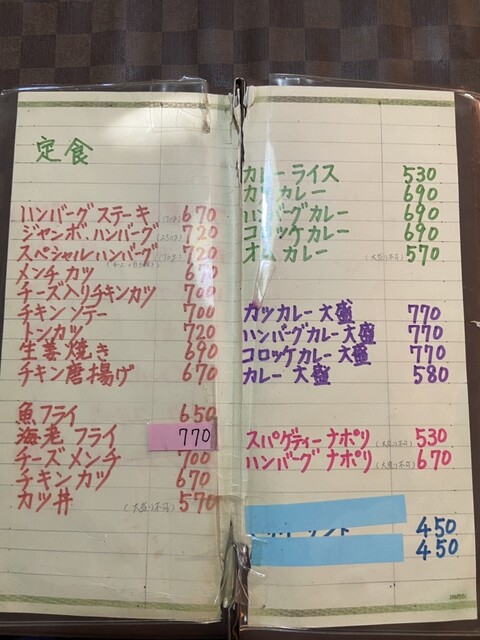 定食
ハンバーグステーキ (170g) 670
ジャンボ.ハンバーグ (250g) 720
スペシャルハンバーグ (170g) 720
メンチカツ 670
チーズ入りチキンカツ 700
チキンソテー 700
トンカツ 720
生姜焼き 690
チキン唐揚げ 670
魚フライ 650
海老フライ 770
チーズメンチ 700
チキンカツ 670
カツ丼 (大盛り不可) 570
カレーライス 530
カツカレー 690
ハンバーグカレー 690
コロッケカレー 690
オムカレー (大盛り不可) 570
カツカレー大盛 770
ハンバーグカレー大盛 770
コロッケカレー大盛 770
カレー大盛 580
スパゲティーナポリ (大盛り不可) 530
ハンバーグナポリ (大盛り不可) 670
450
450